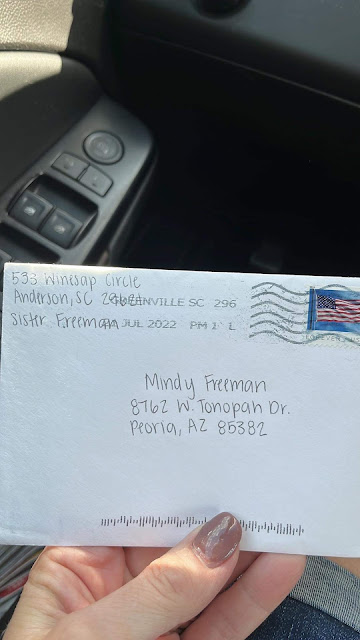 533 Winesap Circle
Anderson, SC GREENVILLE SC 296
Sister Freeman JUL 2022 PM 1 L
Mindy Freeman
8762 W. Tonopah Dr.
Peoria, AZ 85382